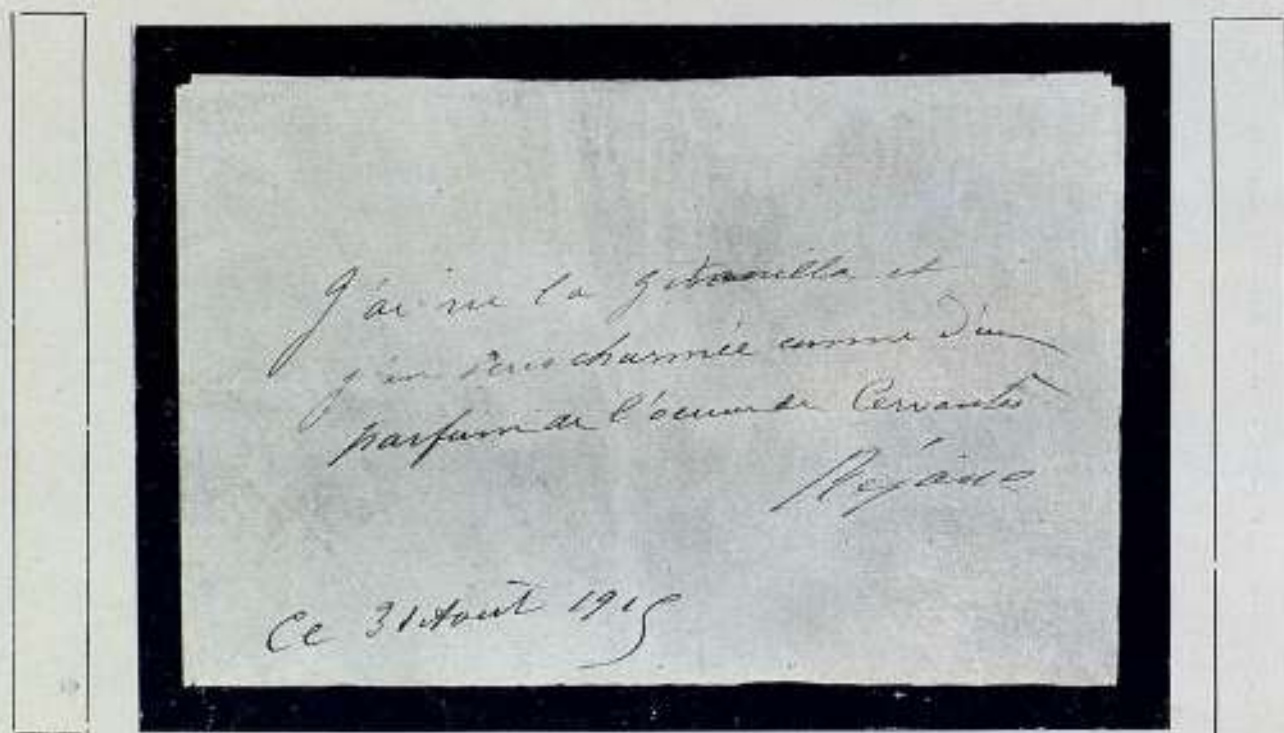 J'ai vu la Gitanilla et
j'en suis charmée comme d'un
parfum de l'œuvre de Cervantes
Réjane
Ce 31 Août 1915